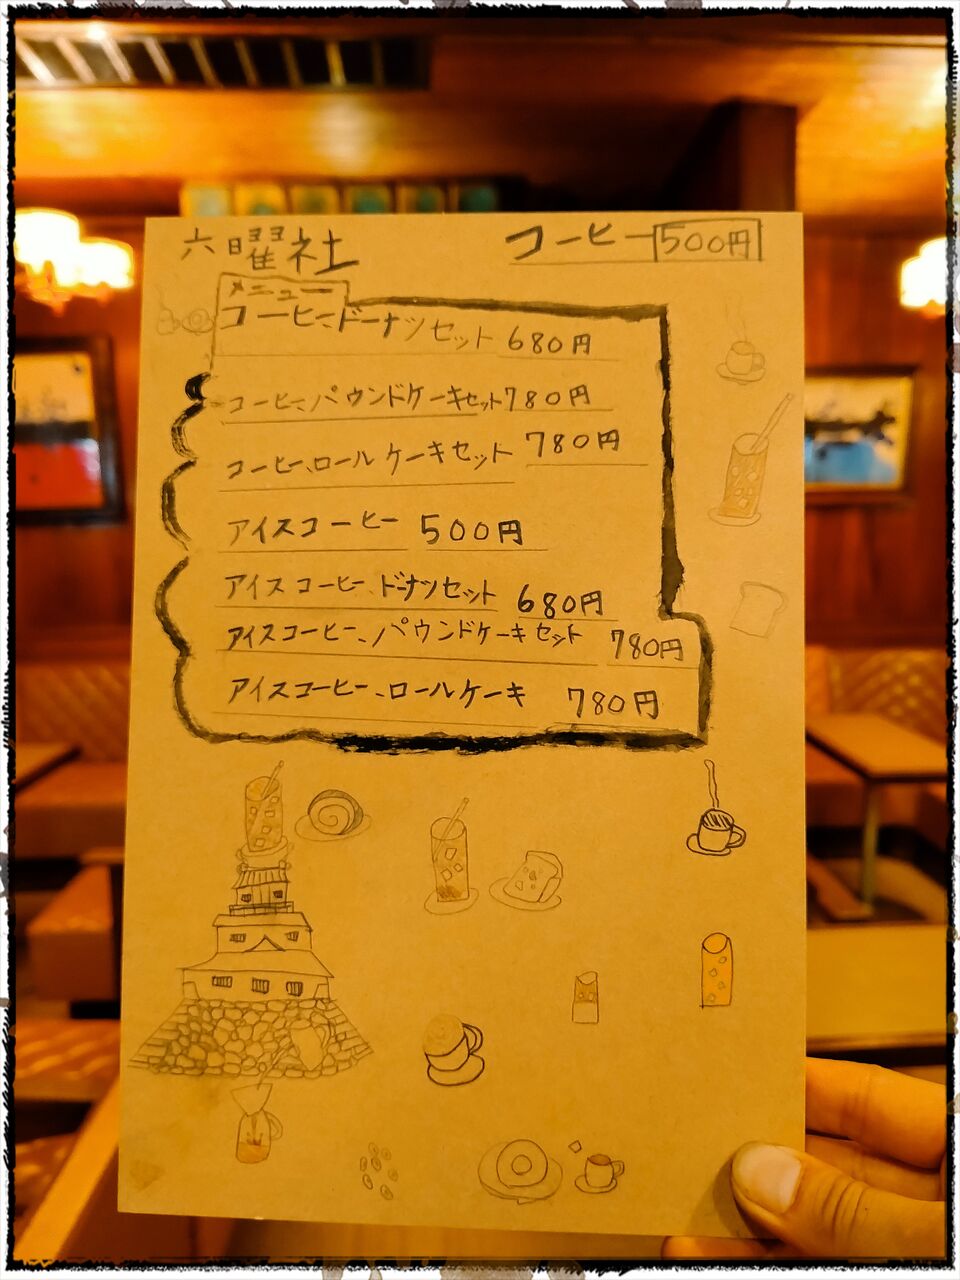 六曜社
コーヒー 500円
メニュー
コーヒー、ドーナツセット 680円
コーヒー、パウンドケーキセット 780円
コーヒー、ロールケーキセット 780円
アイスコーヒー 500円
アイスコーヒー、ドーナツセット 680円
アイスコーヒー、パウンドケーキセット 780円
アイスコーヒー、ロールケーキ 780円